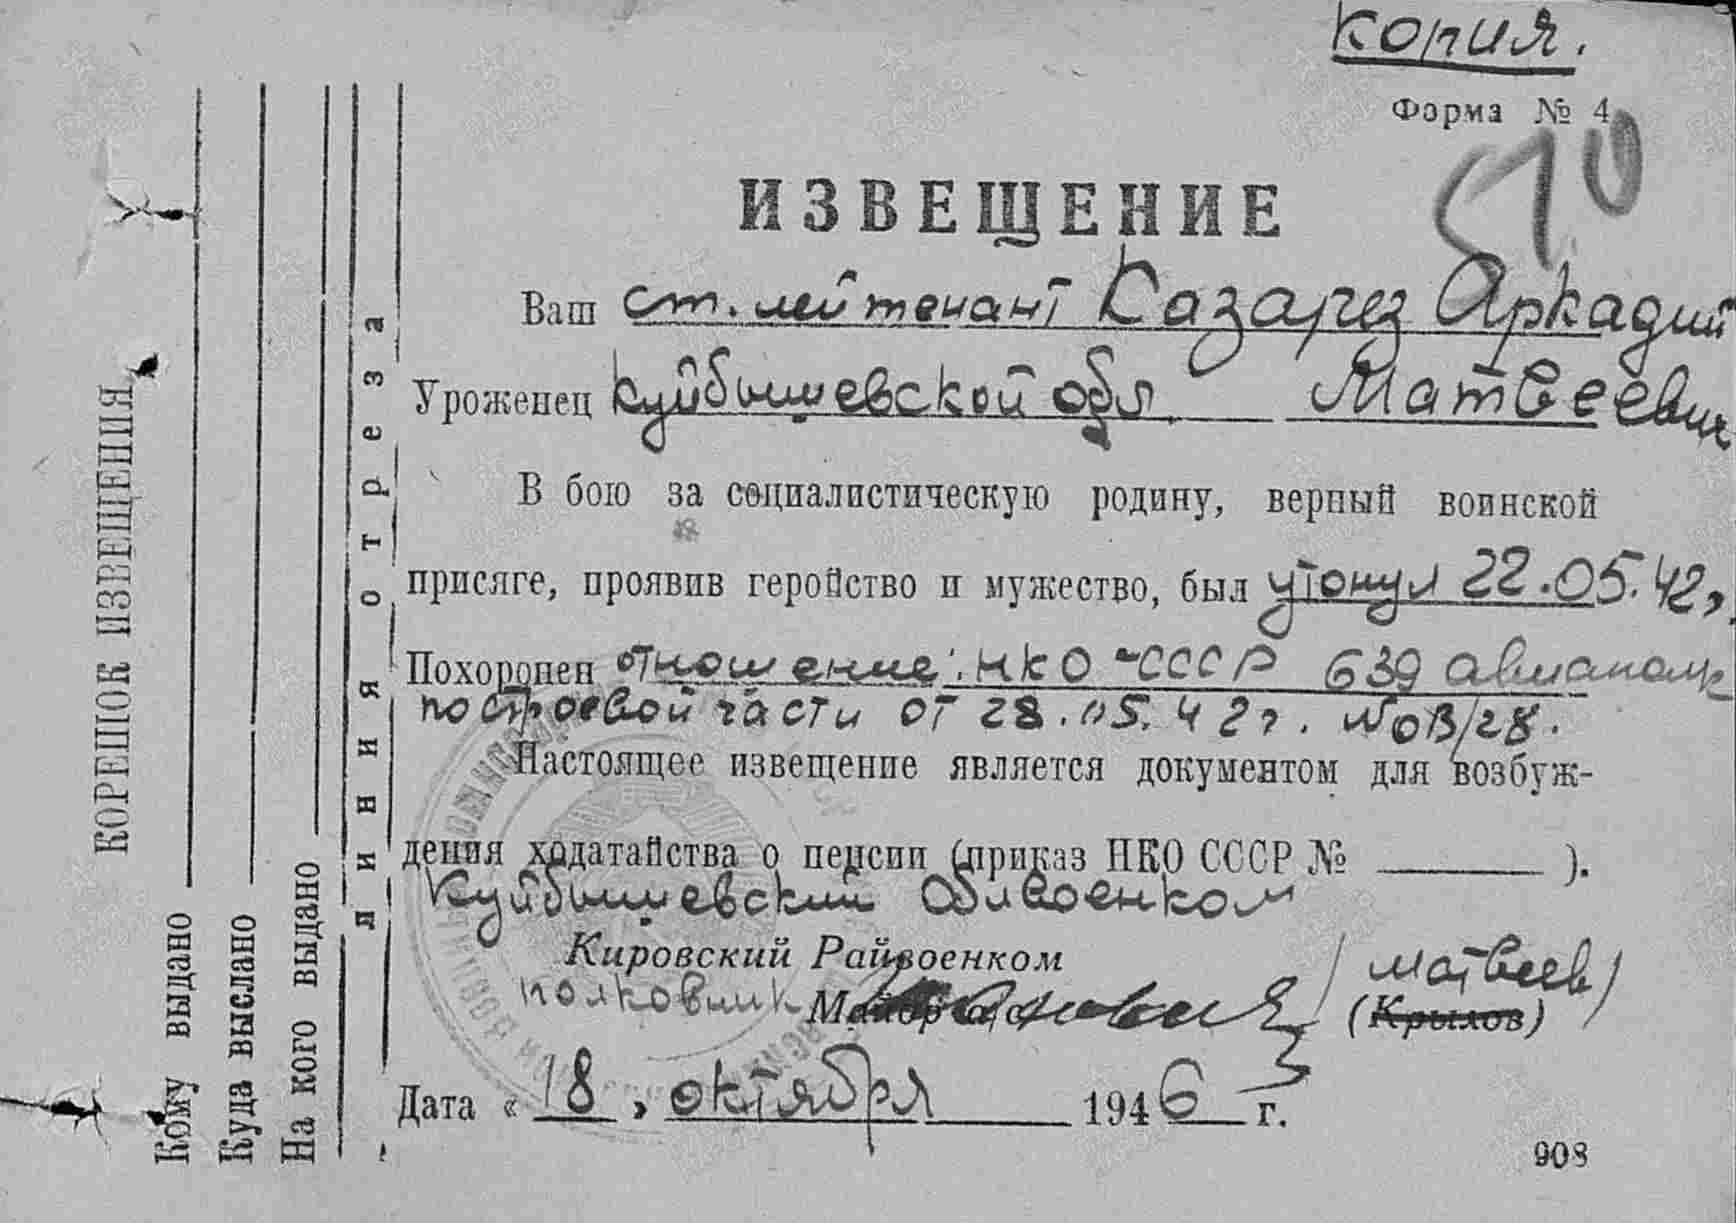 Копия.
Форма № 4
510
ИЗВЕЩЕНИЕ
Ваш ст. лейтенант Казарез Аркадий
Уроженец Куйбышевской обл Матвеевич
В бою за социалистическую родину, верный воинской
присяге, проявив геройство и мужество, был утонул 22.05.42,
Похоронен отношение: НКО-СССР 639 авиаполк
по строевой части от 28.05.42г. №08/28.
Настоящее извещение является документом для возбуж-
дения ходатайства о пенсии (приказ НКО СССР № ).
Куйбышевский Облвоенком
Кировский Райвоенком
полковник Майор /Матвеев/
(Крылов)
Дата «18» октября 1946 г.
908
линия отреза
КОРЕШОК ИЗВЕЩЕНИЯ
Кому выдано
Куда выслано
На кого выдано